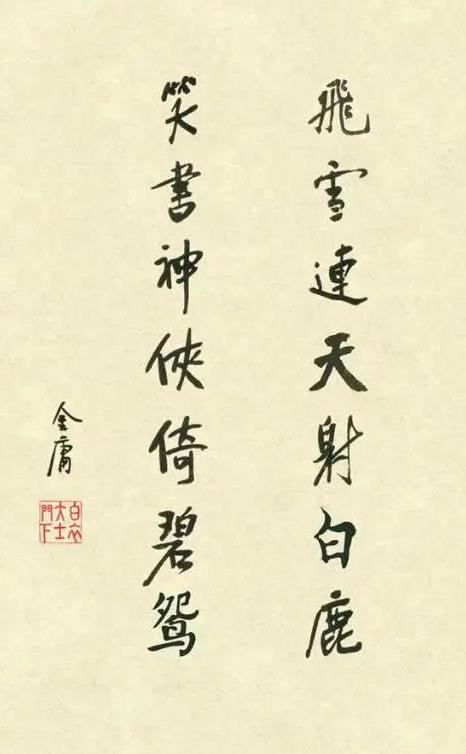 飛雪連天射白鹿
笑書神俠倚碧鸳
金庸
白衣大士門下